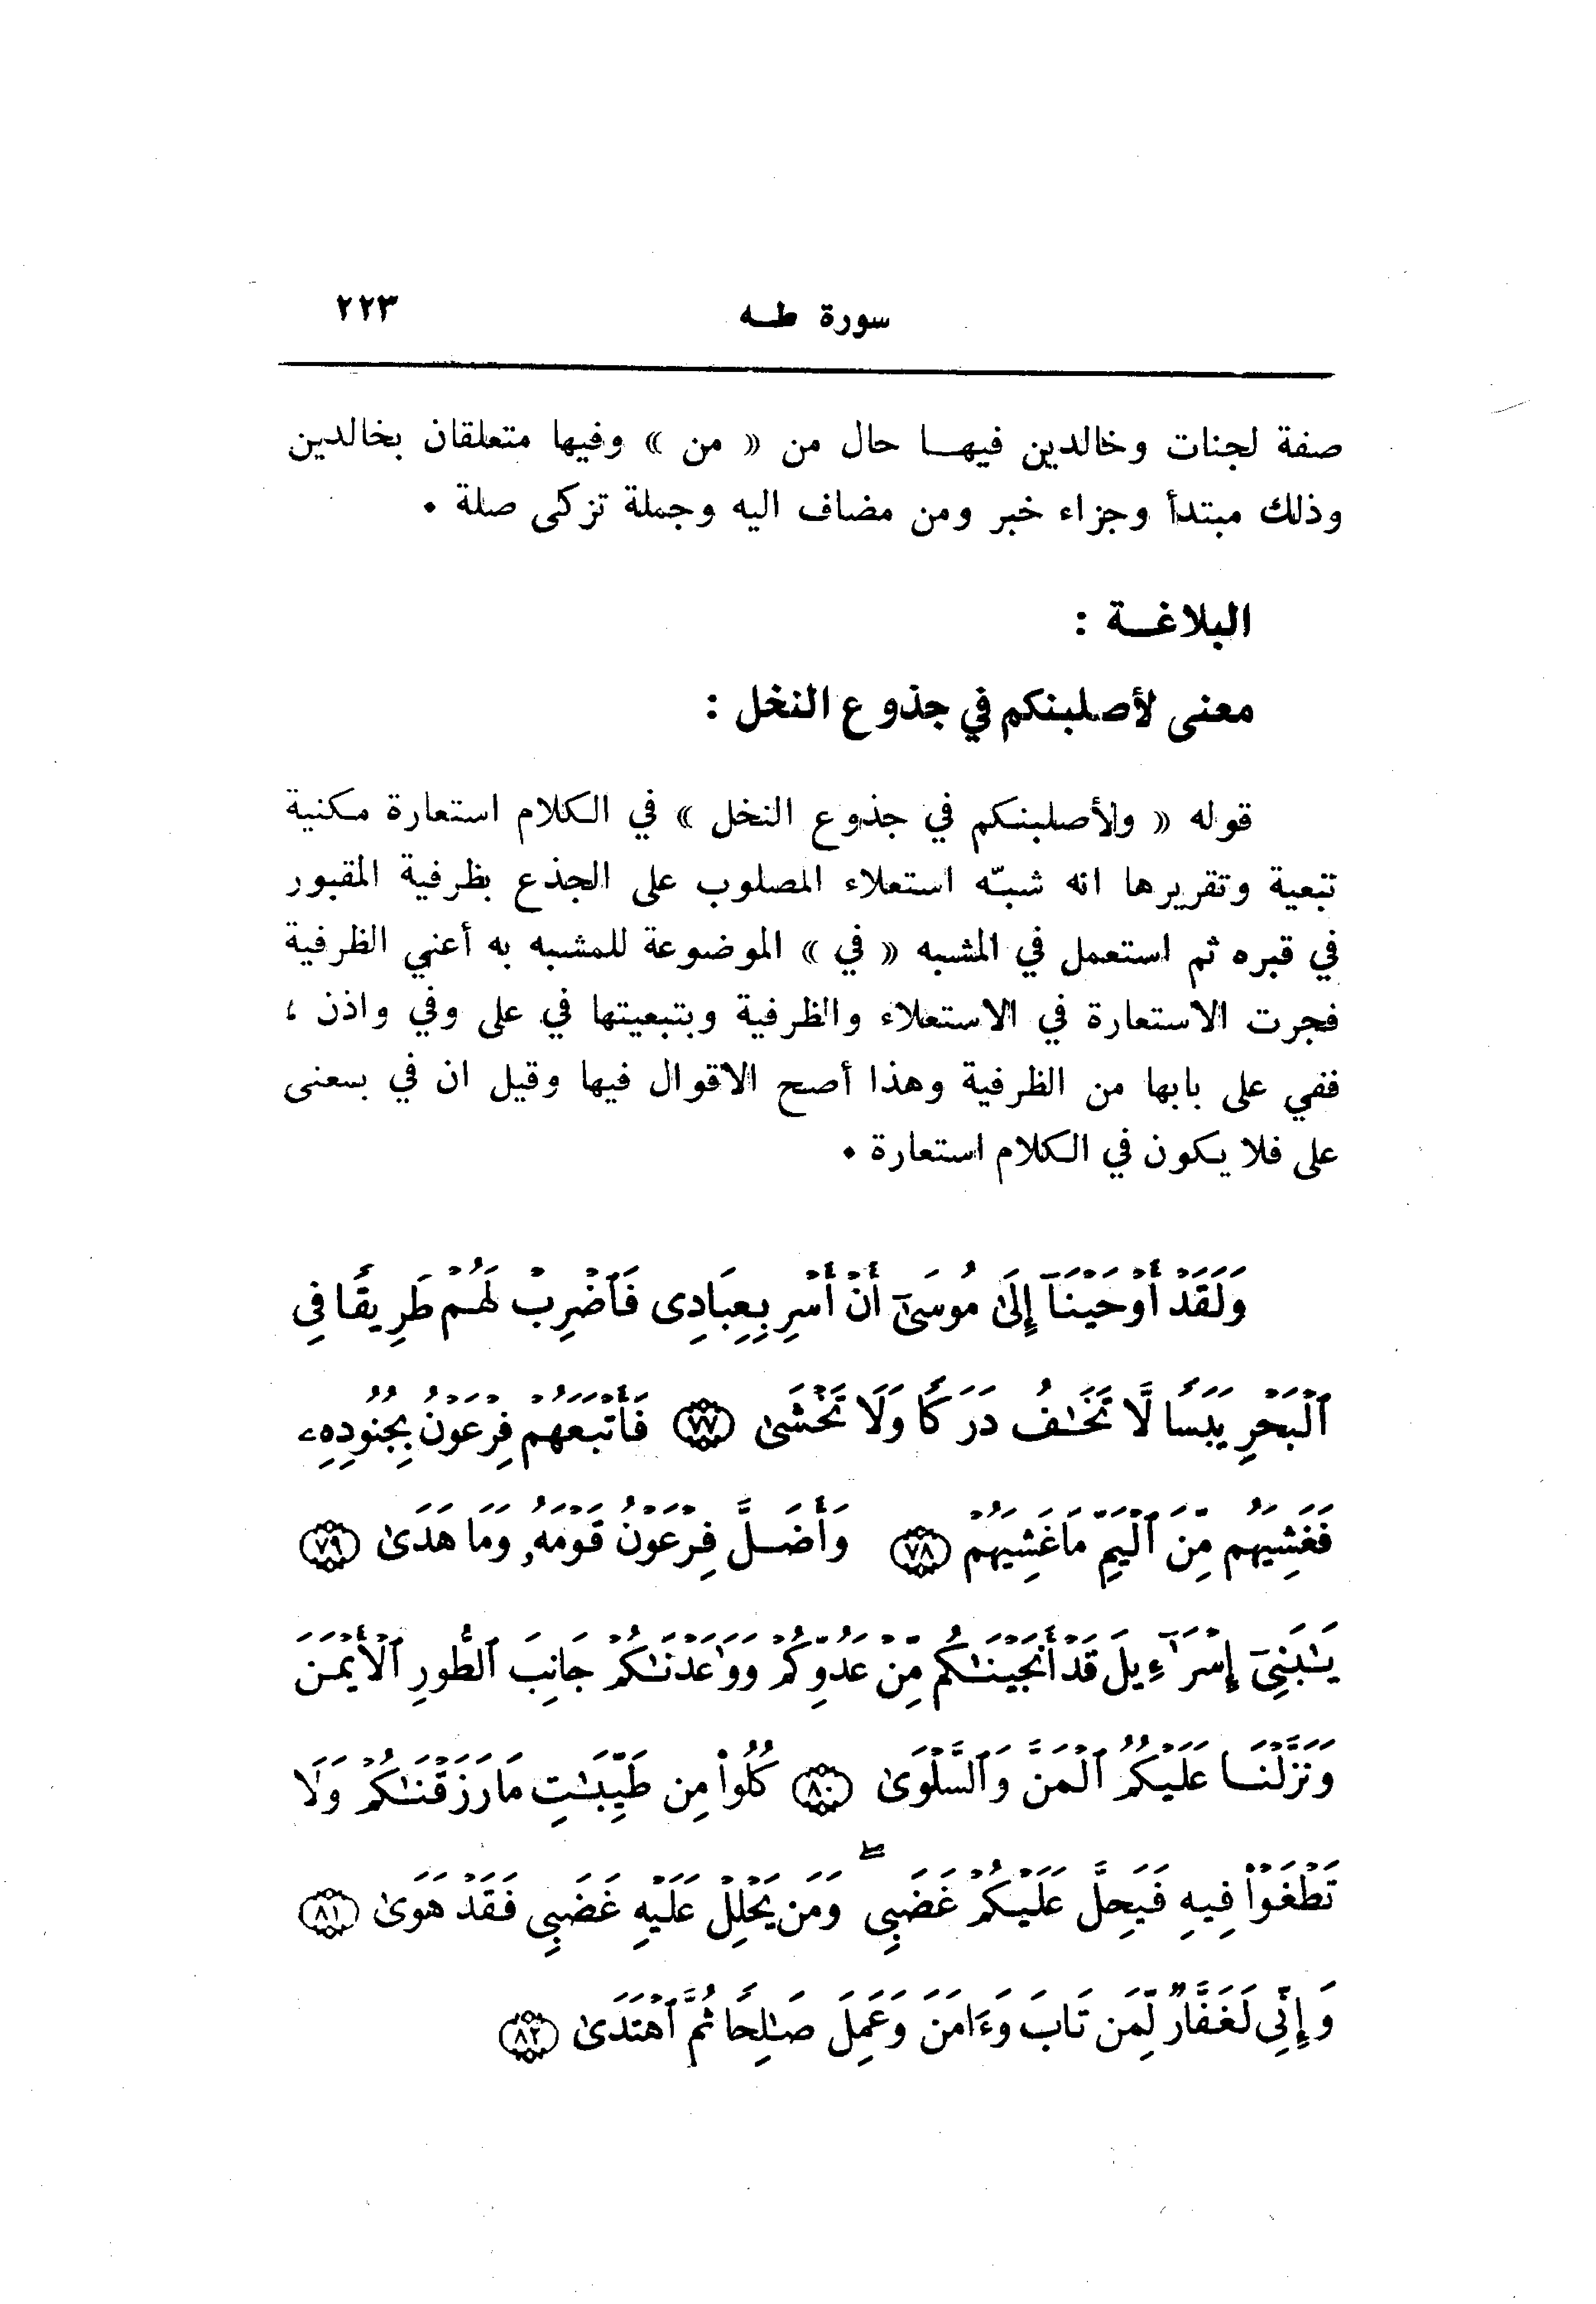 سورة طـه ٢٢٣
صفة لجنات وخالدين فيهـا حال من « من » وفيها متعلقان بخالدين
وذلك مبتدأ وجزاء خبر ومن مضاف اليه وجملة تزكى صلة ٠
البلاغـة :
معنى لأصلبنكم في جذوع النخل :
قوله « ولأصلبنكم في جذوع النخل » في الكلام استعارة مكنية
تبعية وتقريرها انه شبّه استعلاء المصلوب على الجذع بظرفية المقبور
في قبره ثم استعمل في المشبه « في » الموضوعة للمشبه به أعني الظرفية
فجرت الاستعارة في الاستعلاء والظرفية وبتبعيتها في على وفي واذن ،
ففي على بابها من الظرفية وهذا أصح الاقوال فيها وقيل ان في بمعنى
على فلا يكون في الكلام استعارة ٠
وَلَقَدْ أَوْحَيْنَآ إِلَىٰ مُوسَىٰٓ أَنْ أَسْرِ بِعِبَادِى فَٱضْرِبْ لَهُمْ طَرِيقًا فِى
ٱلْبَحْرِ يَبَسًا لَّا تَخَٰفُ دَرَكًا وَلَا تَخْشَىٰ ﴿٧٧﴾ فَأَتْبَعَهُمْ فِرْعَوْنُ بِجُنُودِهِۦ
فَغَشِيَهُم مِّنَ ٱلْيَمِّ مَا غَشِيَهُمْ ﴿٧٨﴾ وَأَضَلَّ فِرْعَوْنُ قَوْمَهُۥ وَمَا هَدَىٰ ﴿٧٩﴾
يَٰبَنِىٓ إِسْرَٰٓءِيلَ قَدْ أَنجَيْنَٰكُم مِّنْ عَدُوِّكُمْ وَوَٰعَدْنَٰكُمْ جَانِبَ ٱلطُّورِ ٱلْأَيْمَنَ
وَنَزَّلْنَا عَلَيْكُمُ ٱلْمَنَّ وَٱلسَّلْوَىٰ ﴿٨٠﴾ كُلُوا۟ مِن طَيِّبَٰتِ مَا رَزَقْنَٰكُمْ وَلَا
تَطْغَوْا۟ فِيهِ فَيَحِلَّ عَلَيْكُمْ غَضَبِى ۖ وَمَن يَحْلِلْ عَلَيْهِ غَضَبِى فَقَدْ هَوَىٰ ﴿٨١﴾
وَإِنِّى لَغَفَّارٌ لِّمَن تَابَ وَءَامَنَ وَعَمِلَ صَٰلِحًا ثُمَّ ٱهْتَدَىٰ ﴿٨٢﴾